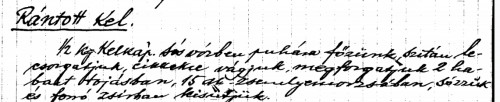 Rántott Kel.
½ kg Kelkáp. sós vízben puhára főzünk, szitán le-
csorgatjuk, cikkekre vágjuk, megforgatjuk 2 ha-
bart tojásban, 15 dk. zsemlyemorzsában, sózzuk
és forró zsírban kisütjük.